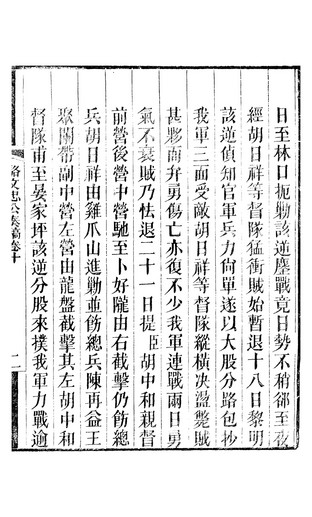 日至林口扼勦該逆鏖戰竟日勢不稍卻至夜
經胡日祥等督隊猛衝賊始暫退十八日黎明
該逆偵知官軍兵力尙單遂以大股分路包抄
我軍三面受敵胡日祥等督隊縱橫决盪斃賊
甚夥而弁勇傷亡亦復不少我軍連戰兩日勇
氣不衰賊乃怯退二十一日提臣胡中和親督
前營後營中營馳至卜好隴由右截擊仍飭總
兵胡日祥由雞爪山進勦並飭總兵陳再益王
聚關帶副中營左營由龍盤截擊其左胡中和
督隊甫至晏家坪該逆分股來撲我軍力戰逾
駱文忠公奏稿卷十
二